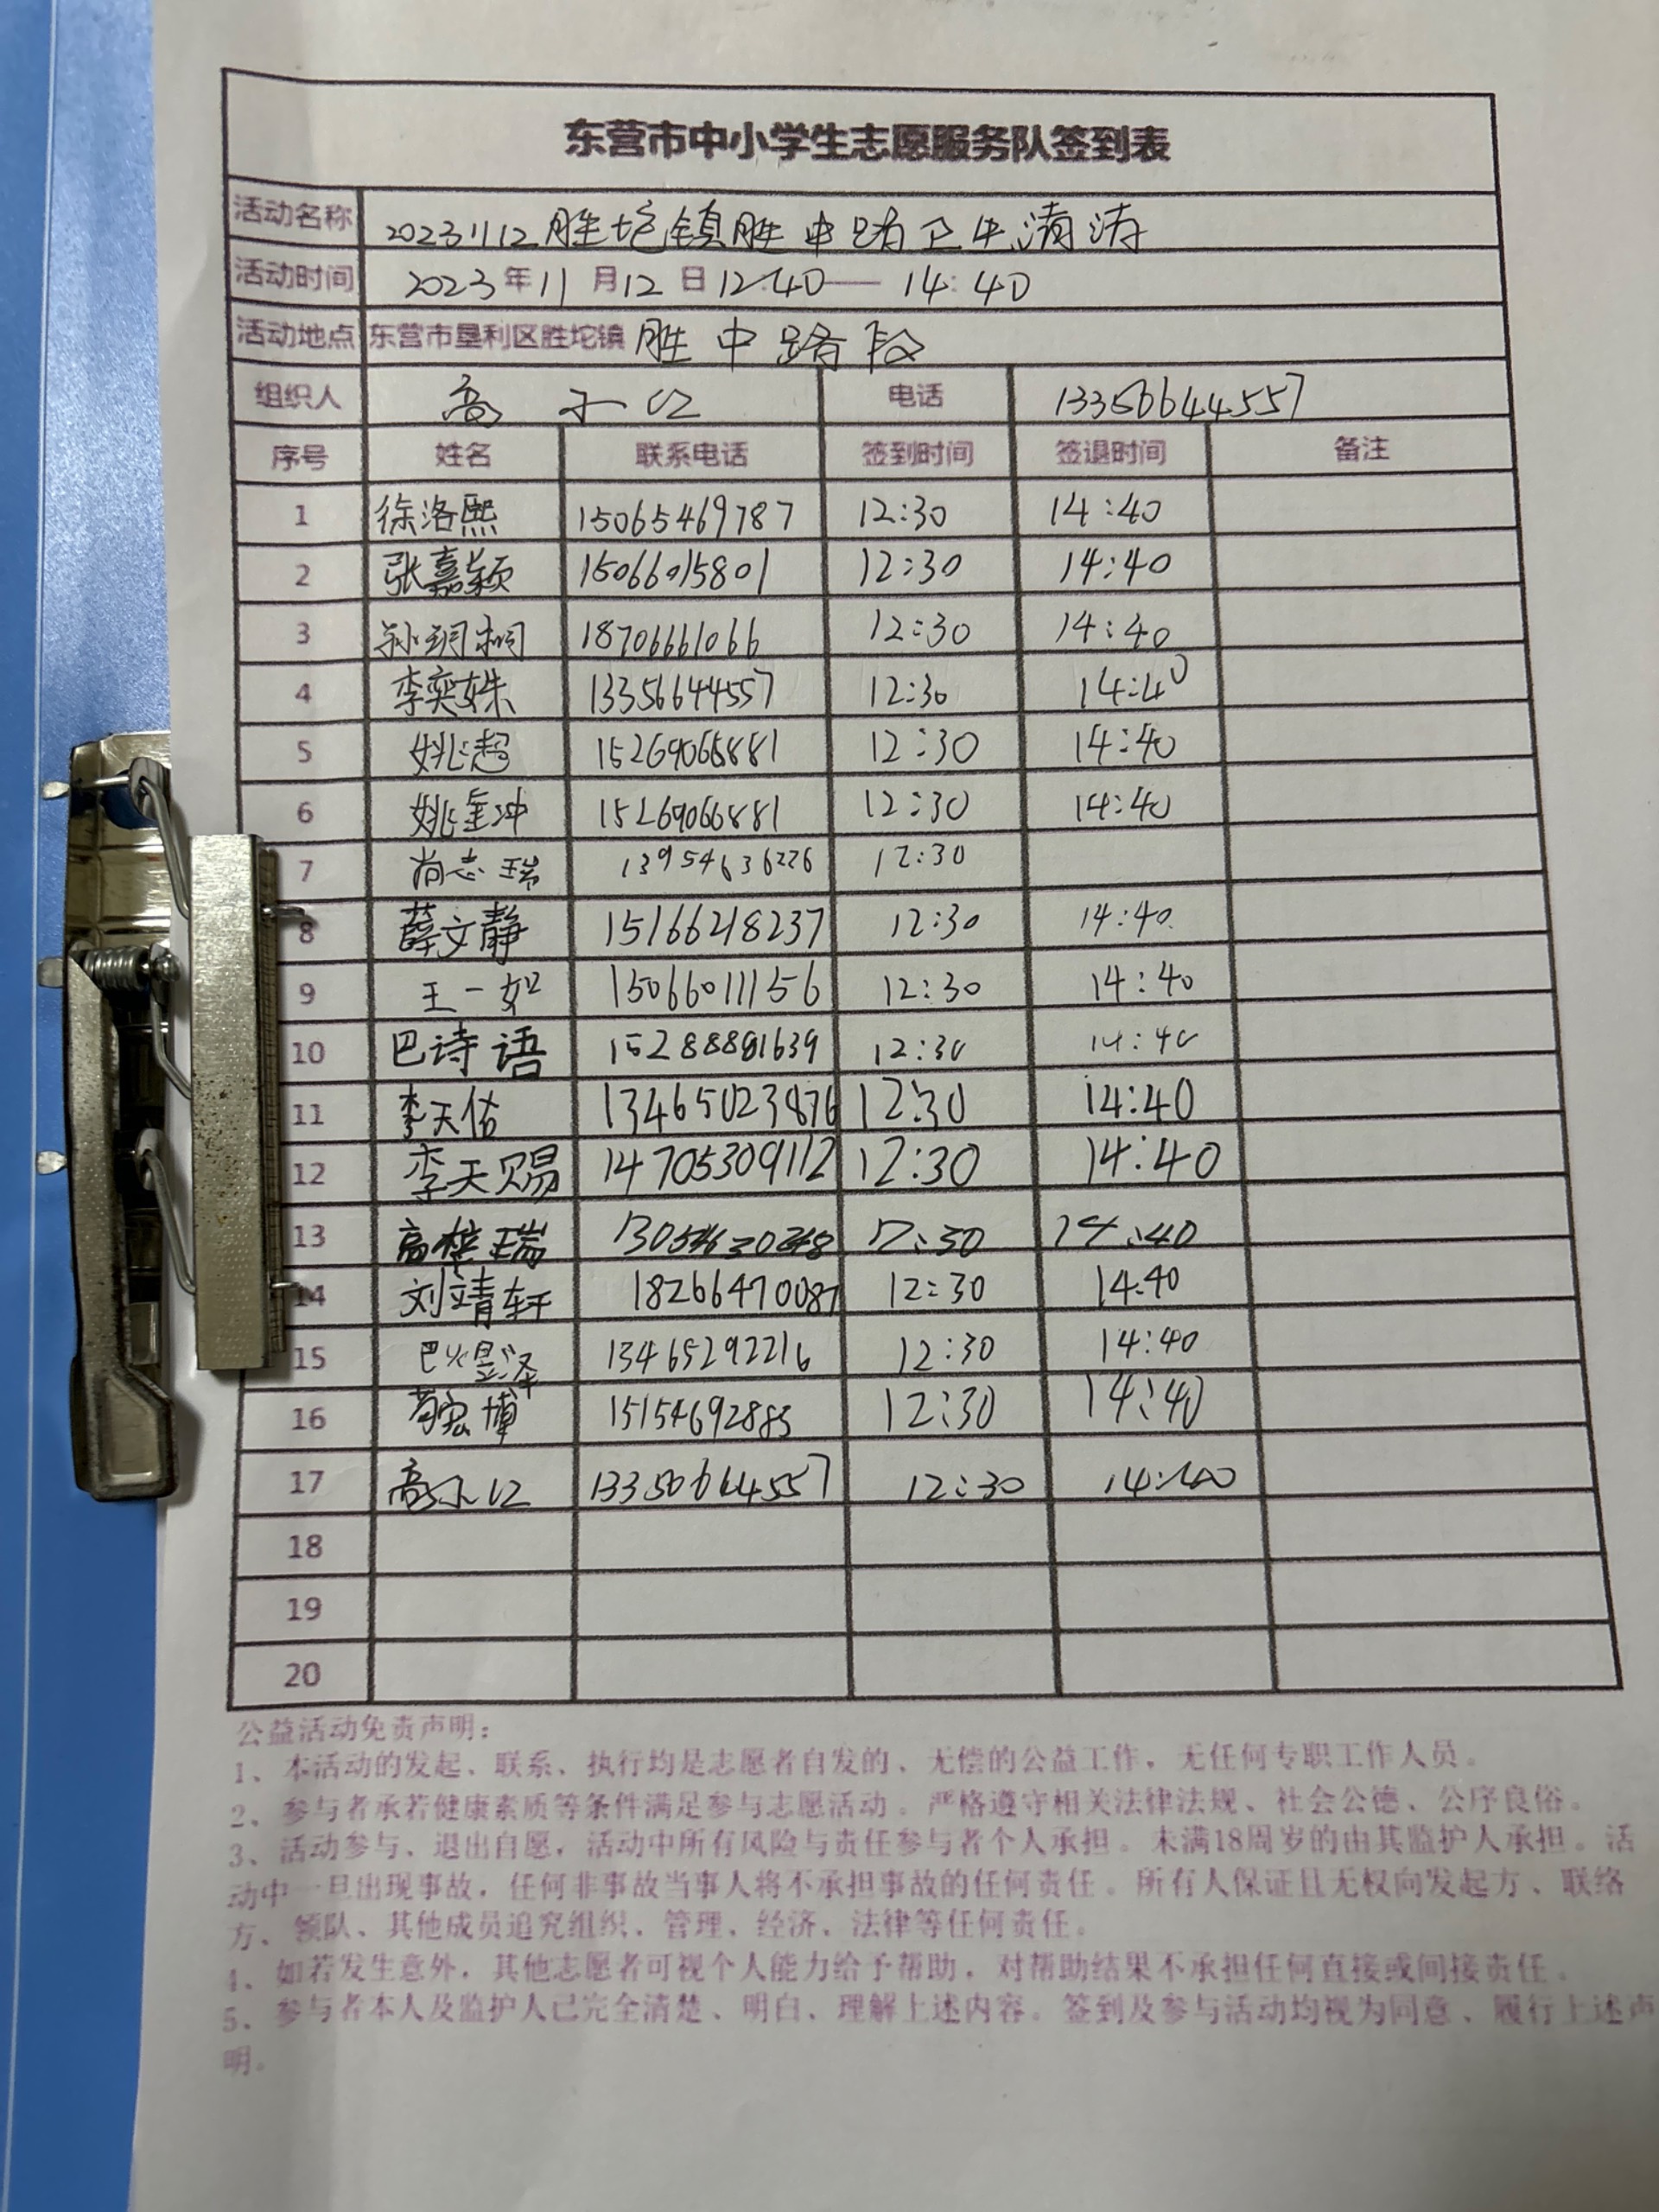 东营市中小学生志愿服务队签到表
活动名称 20231112胜坨镇胜中路卫生清洁
活动时间 2023年11月12日12:40—14:40
活动地点 东营市垦利区胜坨镇 胜中路段
组织人 高 电话 13356644557
序号 姓名 联系电话 签到时间 签退时间 备注
1 徐洛熙 15065469787 12:30 14:40
2 张嘉颖 15066015801 12:30 14:40
3 孙玥桐 18706661066 12:30 14:40
4 李奕姝 13356644557 12:30 14:40
5 姚超 12:30 14:40
6 姚金冲 12:30 14:40
7 尚志瑞 13954636226 12:30
8 薛文静 15166218237 12:30 14:40
9 王一如 15066011156 12:30 14:40
10 巴诗语 12:30 14:40
11 李天佑 13465023876 12:30 14:40
12 李天赐 14705309112 12:30 14:40
13 高梓瑞 12:30 14:40
14 刘靖轩 18266470087 12:30 14:40
15 巴煜泽 13465292216 12:30 14:40
16 苟宏博 15154692883 12:30 14:40
17 高 13356644557 12:30 14:40
18
19
20
公益活动免责声明：
1、本活动的发起、联系、执行均是志愿者自发的、无偿的公益工作，无任何专职工作人员。
2、参与者承若健康素质等条件满足参与志愿活动。严格遵守相关法律法规、社会公德、公序良俗。
3、活动参与、退出自愿，活动中所有风险与责任参与者个人承担。未满18周岁的由其监护人承担。活
动中一旦出现事故，任何非事故当事人将不承担事故的任何责任。所有人保证且无权向发起方、联络
方、领队、其他成员追究组织、管理、经济、法律等任何责任。
4、如若发生意外，其他志愿者可视个人能力给予帮助，对帮助结果不承担任何直接或间接责任。
5、参与者本人及监护人已完全清楚、明白、理解上述内容。签到及参与活动均视为同意、履行上述声
明。